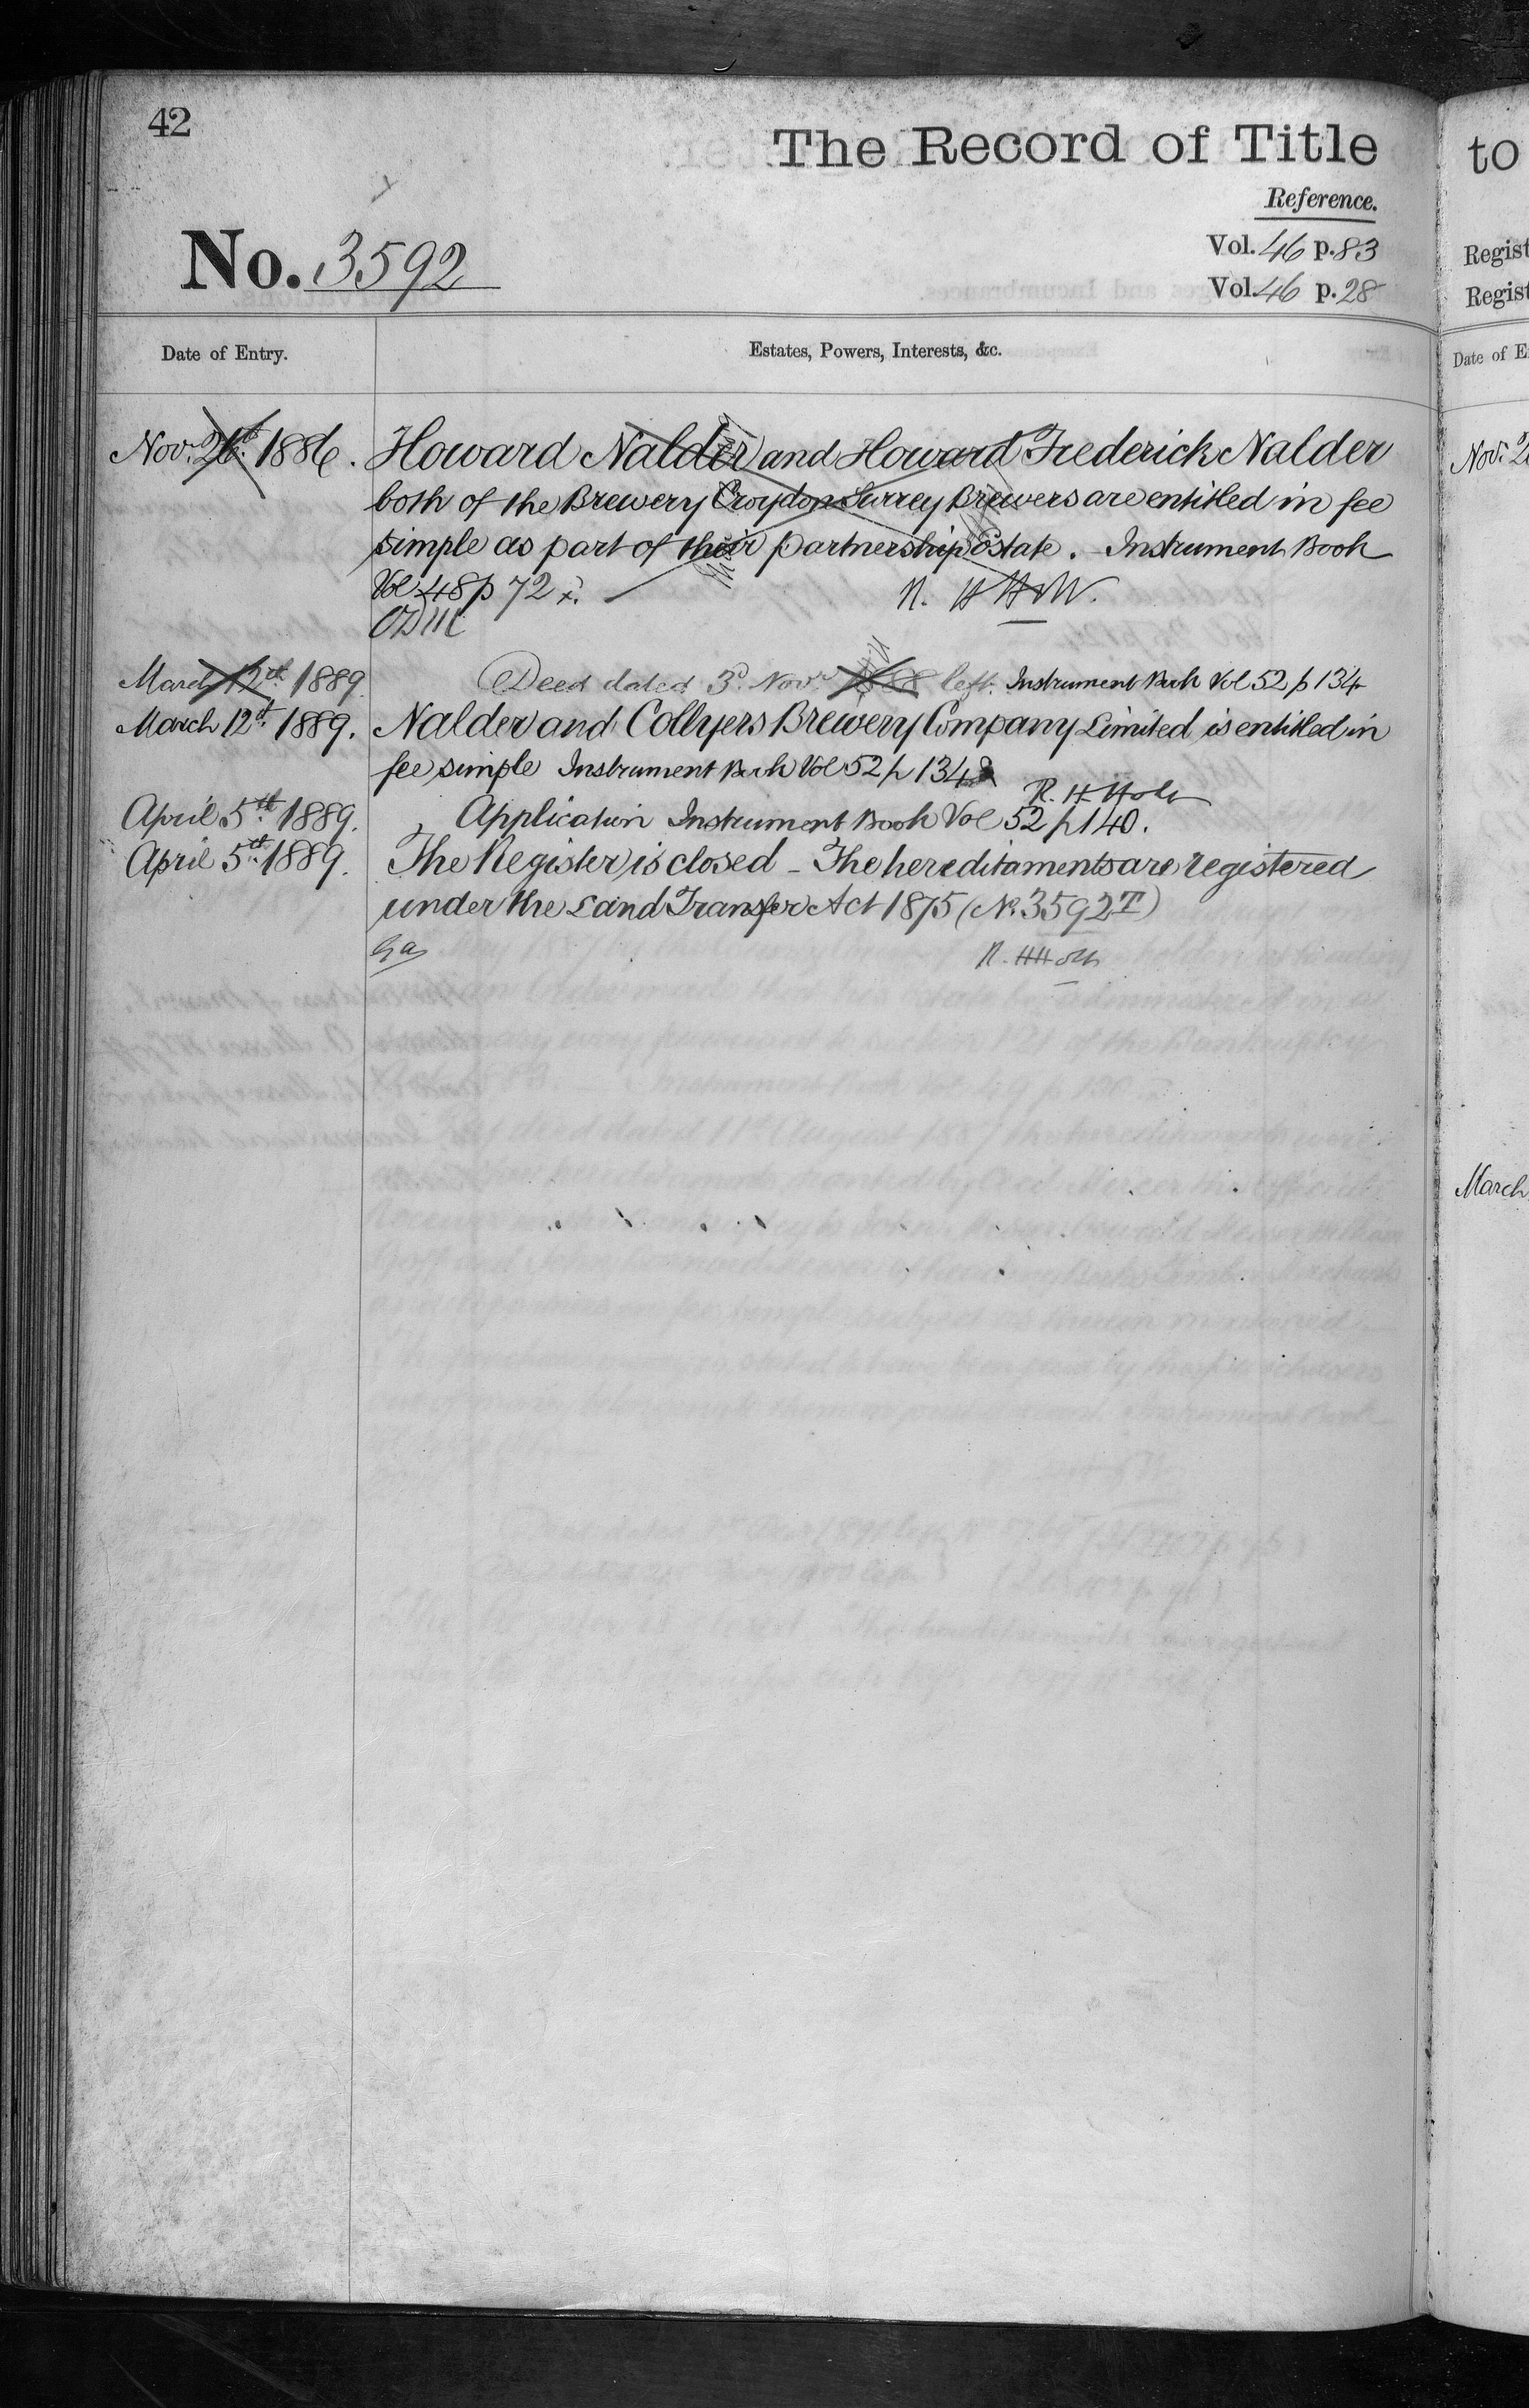 42
The Record of Title
Reference.
No. 3592
Vol. 46 p. 83
Vol. 46 p. 28
Date of Entry.
Estates, Powers, Interests, &c.
Nov. 26th 1886. Howard Nalder and Howard Frederick Nalder
both of the Brewery Croydon Surrey Brewers are entitled in fee
simple as part of their partnership Estate. Instrument Book
Vol 48 p 72
March 12th 1889. Deed dated 3d. Novr. 1888 left. Instrument Book Vol 52 p 134
March 12th 1889. Nalder and Collyers Brewery Company Limited is entitled in
fee simple Instrument Book Vol 52 p 134
R. H. Holt
April 5th 1889. Application Instrument Book Vol 52 p 140.
April 5th 1889. The Register is closed – The hereditaments are registered
under the Land Transfer Act 1875 (No. 3592T)
R. H. Holt
to
Regist
Regist
Date of E
Nov.
March